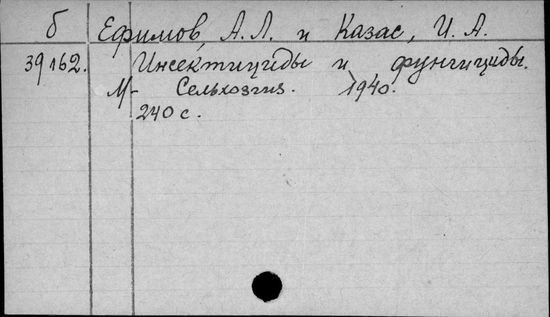 б Ефимов, А. Л. и Казас, И. А.
39162. Инсектициды и фунгициды.
М- Сельхозгиз. 1940.
240 с.